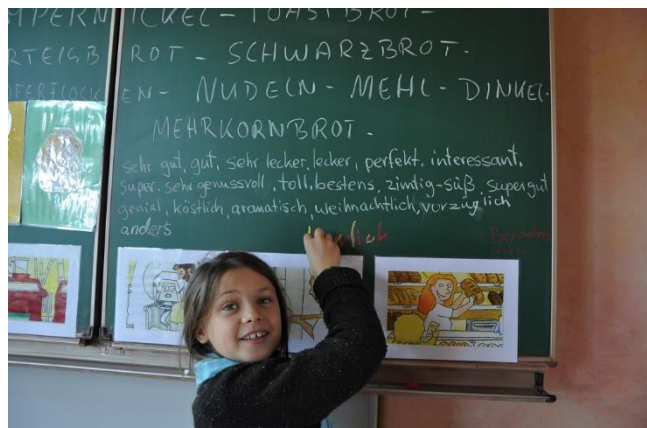 MPERNICKEL - TOASTBROT -
RTEIGBROT - SCHWARZBROT.
FERFLOCKEN - NUDELN - MEHL - DINKEL-
MEHRKORNBROT -
sehr gut, gut, sehr lecker, lecker, perfekt, interessant,
super, sehr genussvoll, toll, bestens, zimtig-süß, supergut
genial, köstlich, aromatisch, weihnachtlich, vorzüglich
anders